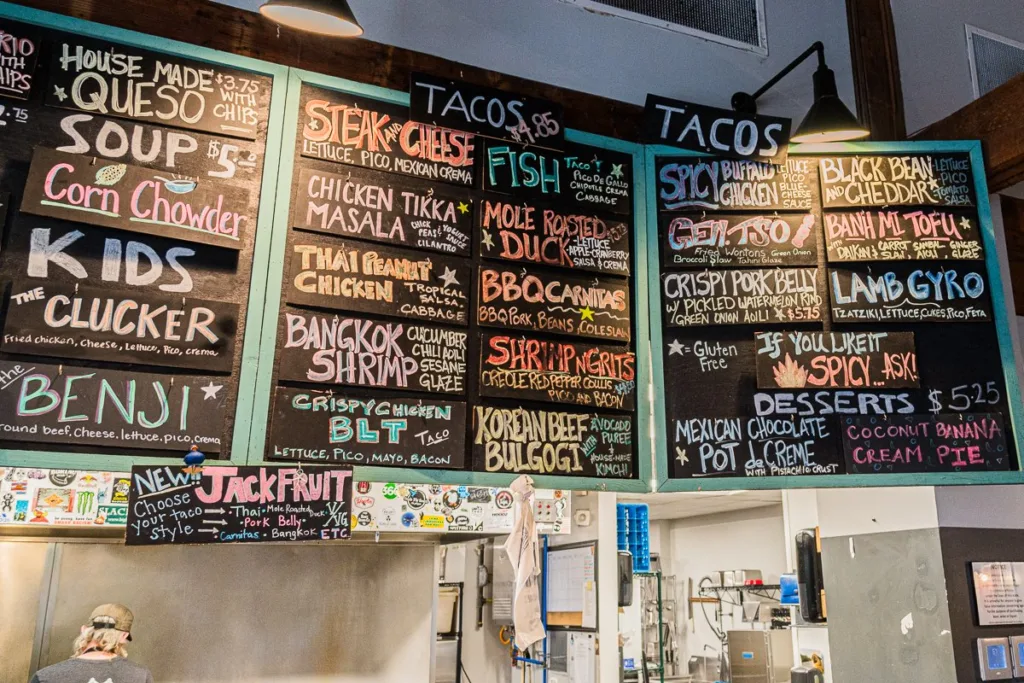 HOUSE MADE
QUESO
$3.75
WITH
CHIPS
WITH
CHIPS
SOUP $5
Corn Chowder
KIDS
THE
CLUCKER
Fried chicken, Cheese, Lettuce, Pico, crema
the
BENJI
Ground beef, cheese, lettuce, pico, crema
TACOS
$4.85
STEAK AND CHEESE
LETTUCE, PICO, MEXICAN CREMA
CHICKEN TIKKA
MASALA
CHICK
PEAS &
YOGURT
SAUCE
CILANTRO
THAI PEANUT
CHICKEN
TROPICAL
SALSA
CABBAGE
BANGKOK
SHRIMP
CUCUMBER
CHILI AOILI
SESAME
GLAZE
CRISPY CHICKEN
BLT TACO
LETTUCE, PICO, MAYO, BACON
FISH TACO
PICO DE GALLO
CHIPOTLE CREMA
CABBAGE
MOLE ROASTED
DUCK
LETTUCE
APPLE-CRANBERRY
SALSA & CREMA
BBQ CARNITAS
BBQ PORK, BEANS, COLE SLAW
SHRIMP N GRITS
CREOLE RED PEPPER COULIS
PICO AND BACON
KOREAN BEEF
BULGOGI
WITH
AVOCADO
PUREE
HOUSE-MADE
KIMCHI
TACOS
SPICY BUFFALO
CHICKEN
LETTUCE
PICO
BLUE
CHEESE
SAUCE
GEN. TSO
Fried Wontons Green Onion
Broccoli Slaw
CRISPY PORK BELLY
W/ PICKLED WATERMELON RIND
GREEN ONION AOILI $5.75
BLACK BEAN
AND CHEDDAR
LETTUCE
PICO
TOMATO
SALSA
BANH MI TOFU
DAIKON & CARROT SAMBAL GINGER
LAMB GYRO
TZATZIKI, LETTUCE, CUKES, PICO, FETA
= Gluten
Free
IF YOU LIKE IT
SPICY...ASK!
DESSERTS $5.25
MEXICAN CHOCOLATE
POT de CREME
WITH PISTACHIO CRUST
COCONUT BANANA
CREAM PIE
NEW! JACKFRUIT
Choose
your taco
style
Thai · Mole Roasted Duck
Pork Belly
Carnitas · Bangkok ETC.
V/
VG